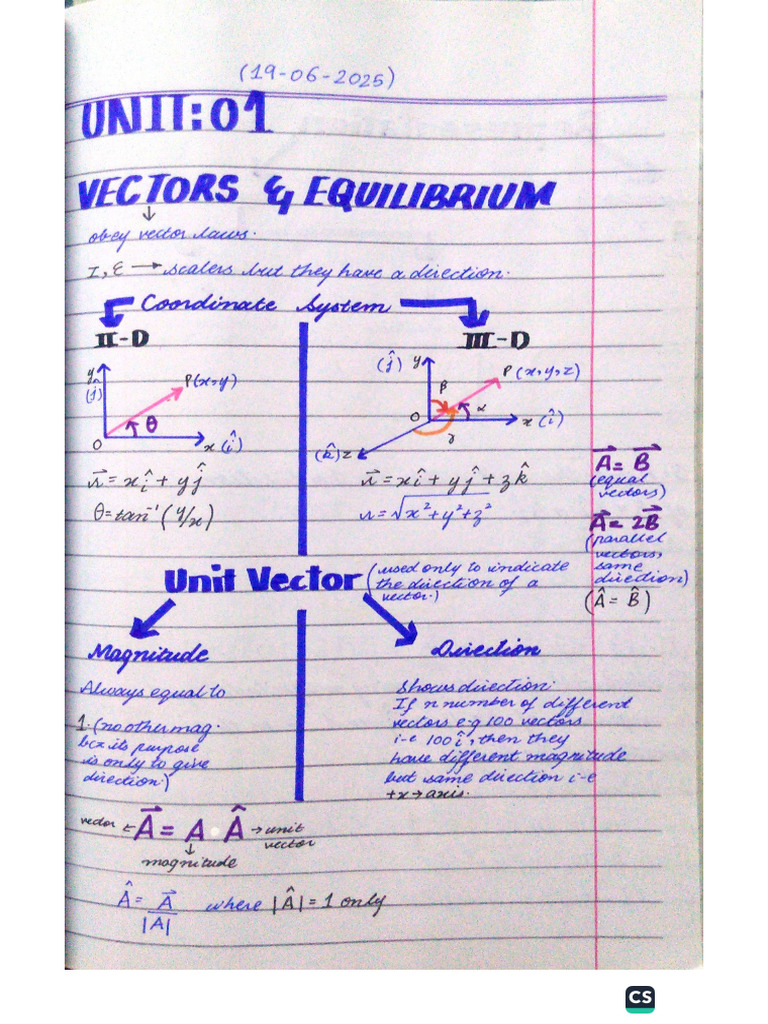 (19-06-2025)
UNIT:01
VECTORS & EQUILIBRIUM
↓
obey vector laws.
I, ε → scalers but they have a direction.
Coordinate System
II-D
III-D
y
(ĵ)
P(x,y)
θ
O
x (î)
(ĵ) y
P (x,y,z)
β
α
O
x (î)
γ
(k̂) z
r⃗ = xî + yĵ
θ = tan⁻¹ (y/x)
r⃗ = xî + yĵ + zk̂
r = √x²+y²+z²
A⃗ = B⃗
(equal
vectors)
A⃗ = 2B⃗
(parallel
vectors,
same
direction)
(Â = B̂)
Unit Vector (used only to indicate
the direction of a
vector.)
Magnitude
Always equal to
1. (no other mag.
bcz its purpose
is only to give
direction.)
Direction
Shows direction.
If n number of different
vectors e.g 100 vectors
i-e 100 î, then they
have different magnitude
but same direction i-e
+x → axis.
vector ← A⃗ = A · Â → unit
vector
↓
magnitude
Â = A⃗/|A| where |Â| = 1 only
CS